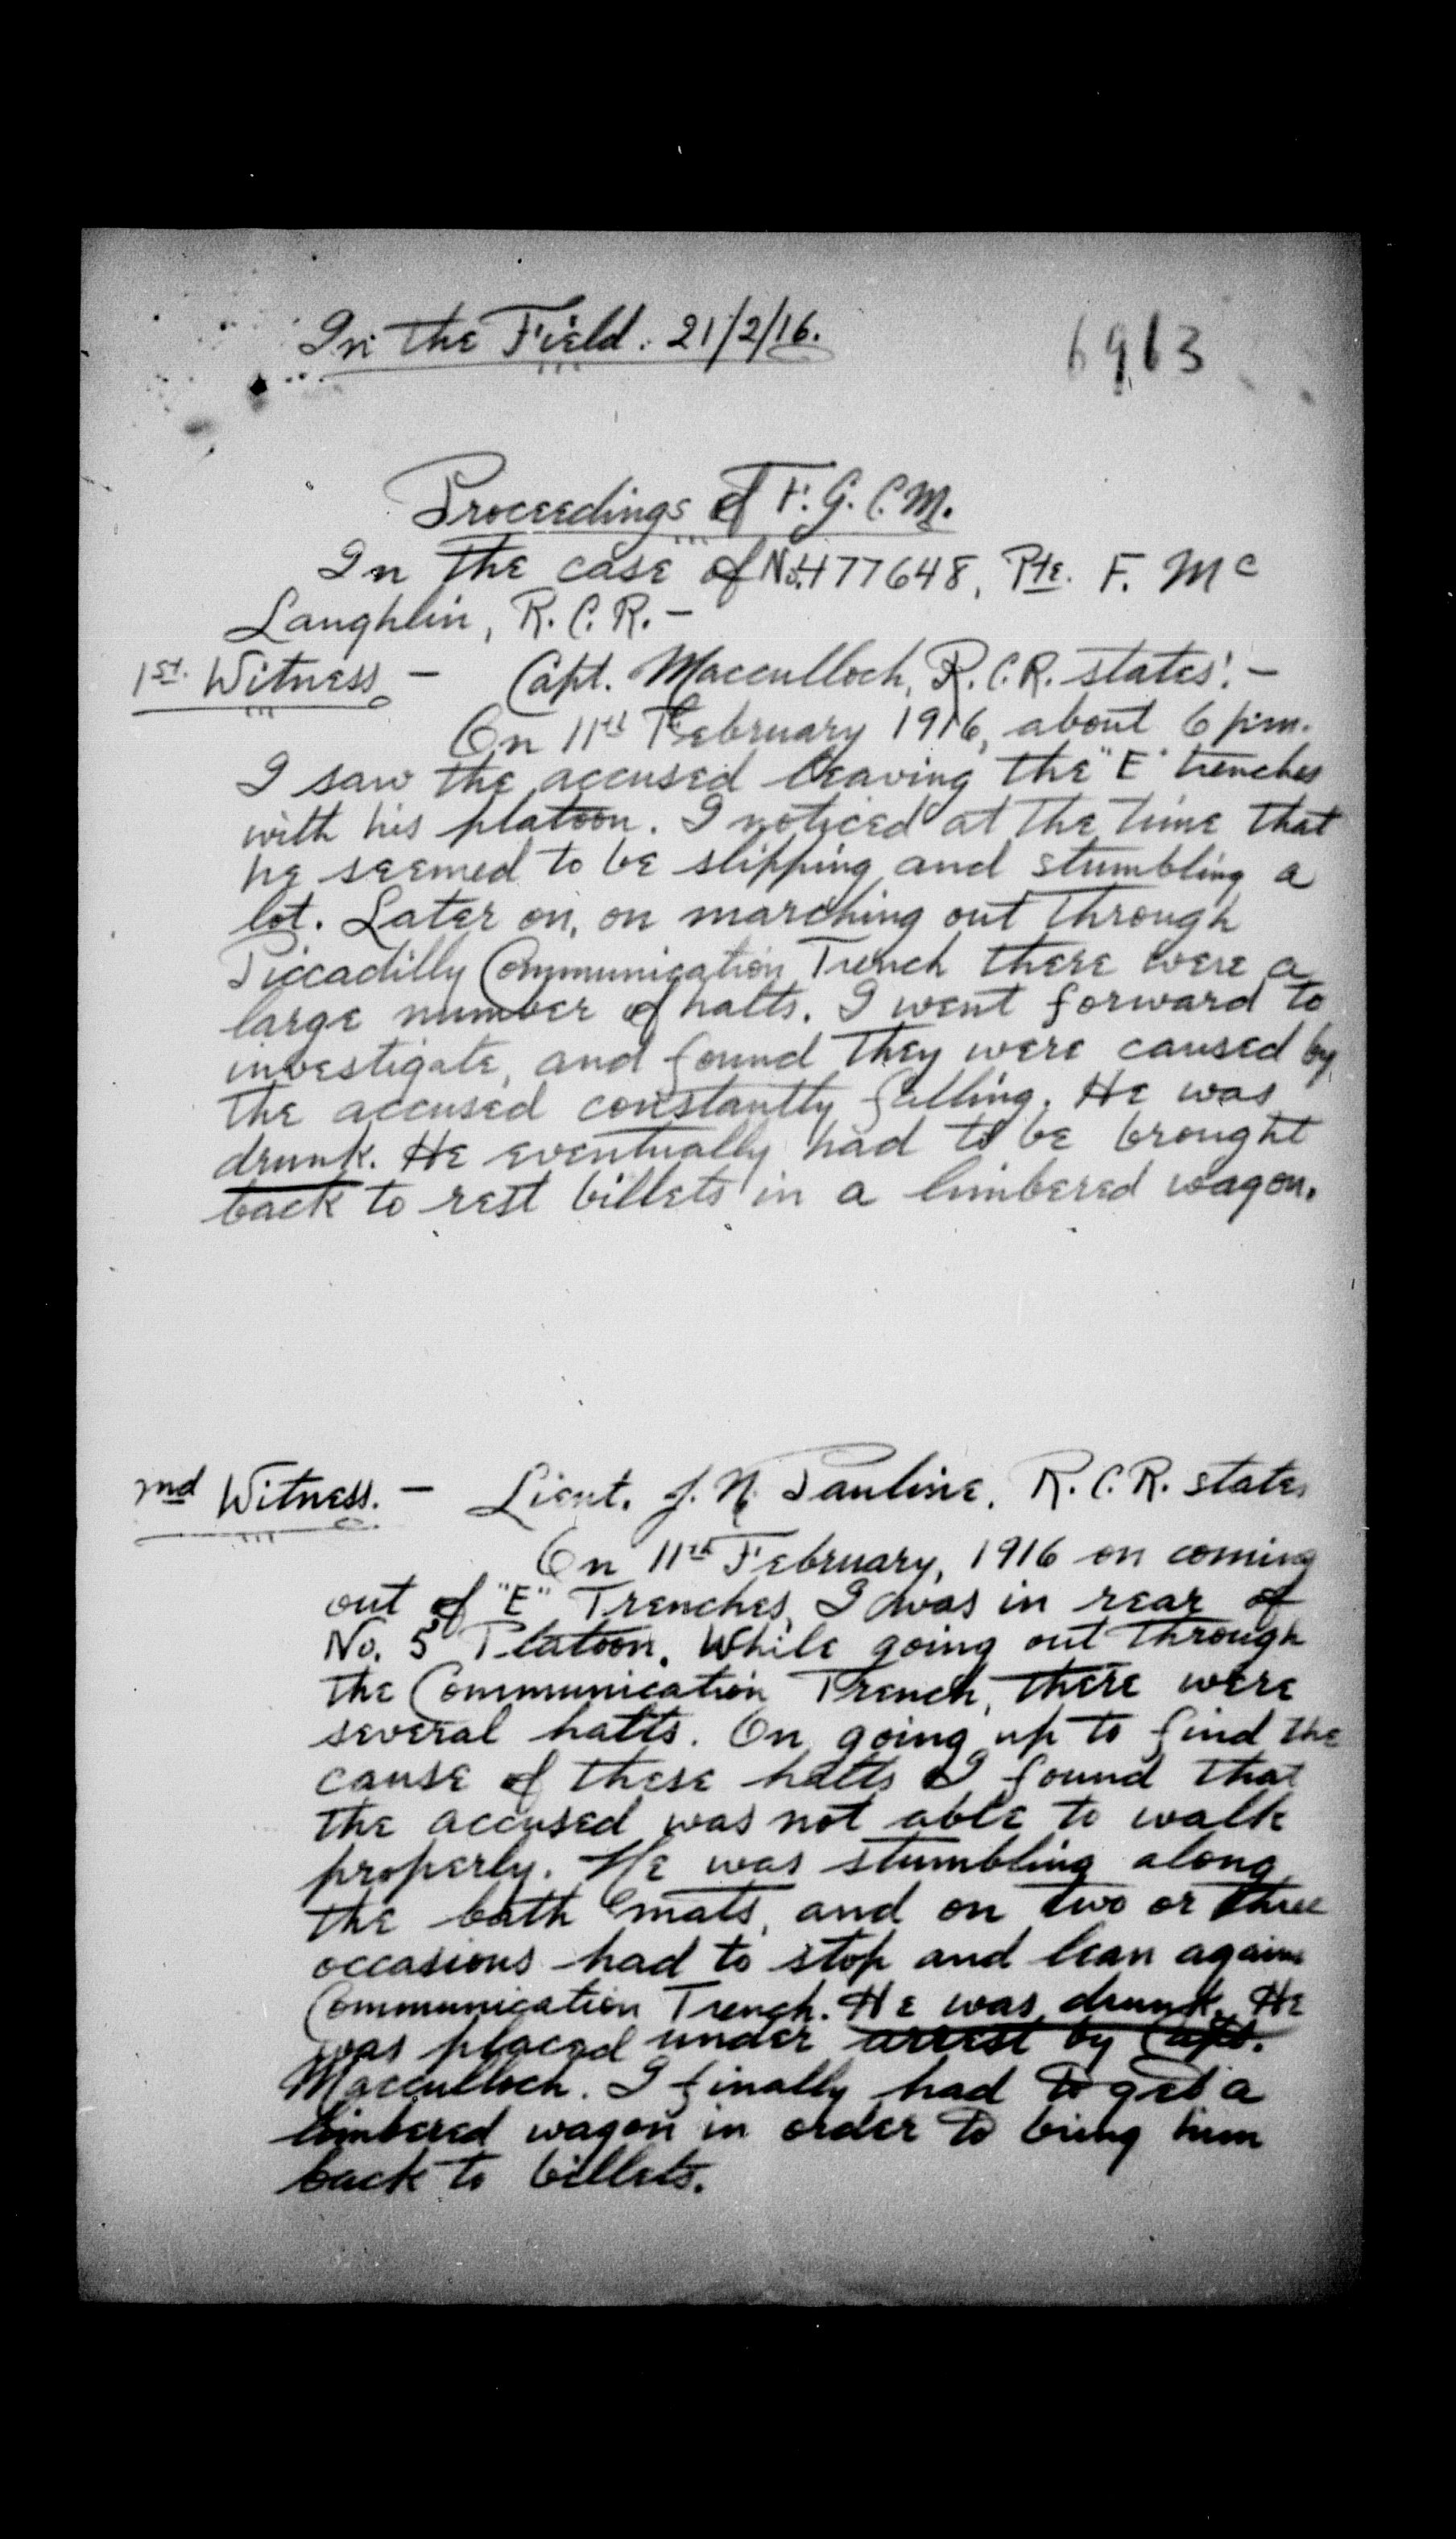 In the Field. 21/2/16.
6963
Proceedings of F. G. C. M.
In the case of No. 477648, Pte. F. Mc
Laughlin, R. C. R. -
1st. Witness - Capt. Macculloch, R. C. R. states: -
On 11th February 1916, about 6 p.m.
I saw the accused leaving the "E" trenches
with his platoon. I noticed at the time that
he seemed to be slipping and stumbling a
lot. Later on, on marching out through
Piccadilly Communication Trench there were a
large number of halts. I went forward to
investigate, and found they were caused by
the accused constantly falling. He was
drunk. He eventually had to be brought
back to rest billets in a limbered wagon.
2nd Witness. - Lieut. J. N. Pauline, R. C. R. states
On 11th February, 1916 on coming
out of "E" Trenches, I was in rear of
No. 5 Platoon. While going out through
the Communication Trench, there were
several halts. On going up to find the
cause of these halts I found that
the accused was not able to walk
properly. He was stumbling along
the bath mats, and on two or three
occasions had to stop and lean against
Communication Trench. He was drunk. He
was placed under arrest by Capt.
Macculloch. I finally had to get a
limbered wagon in order to bring him
back to billets.